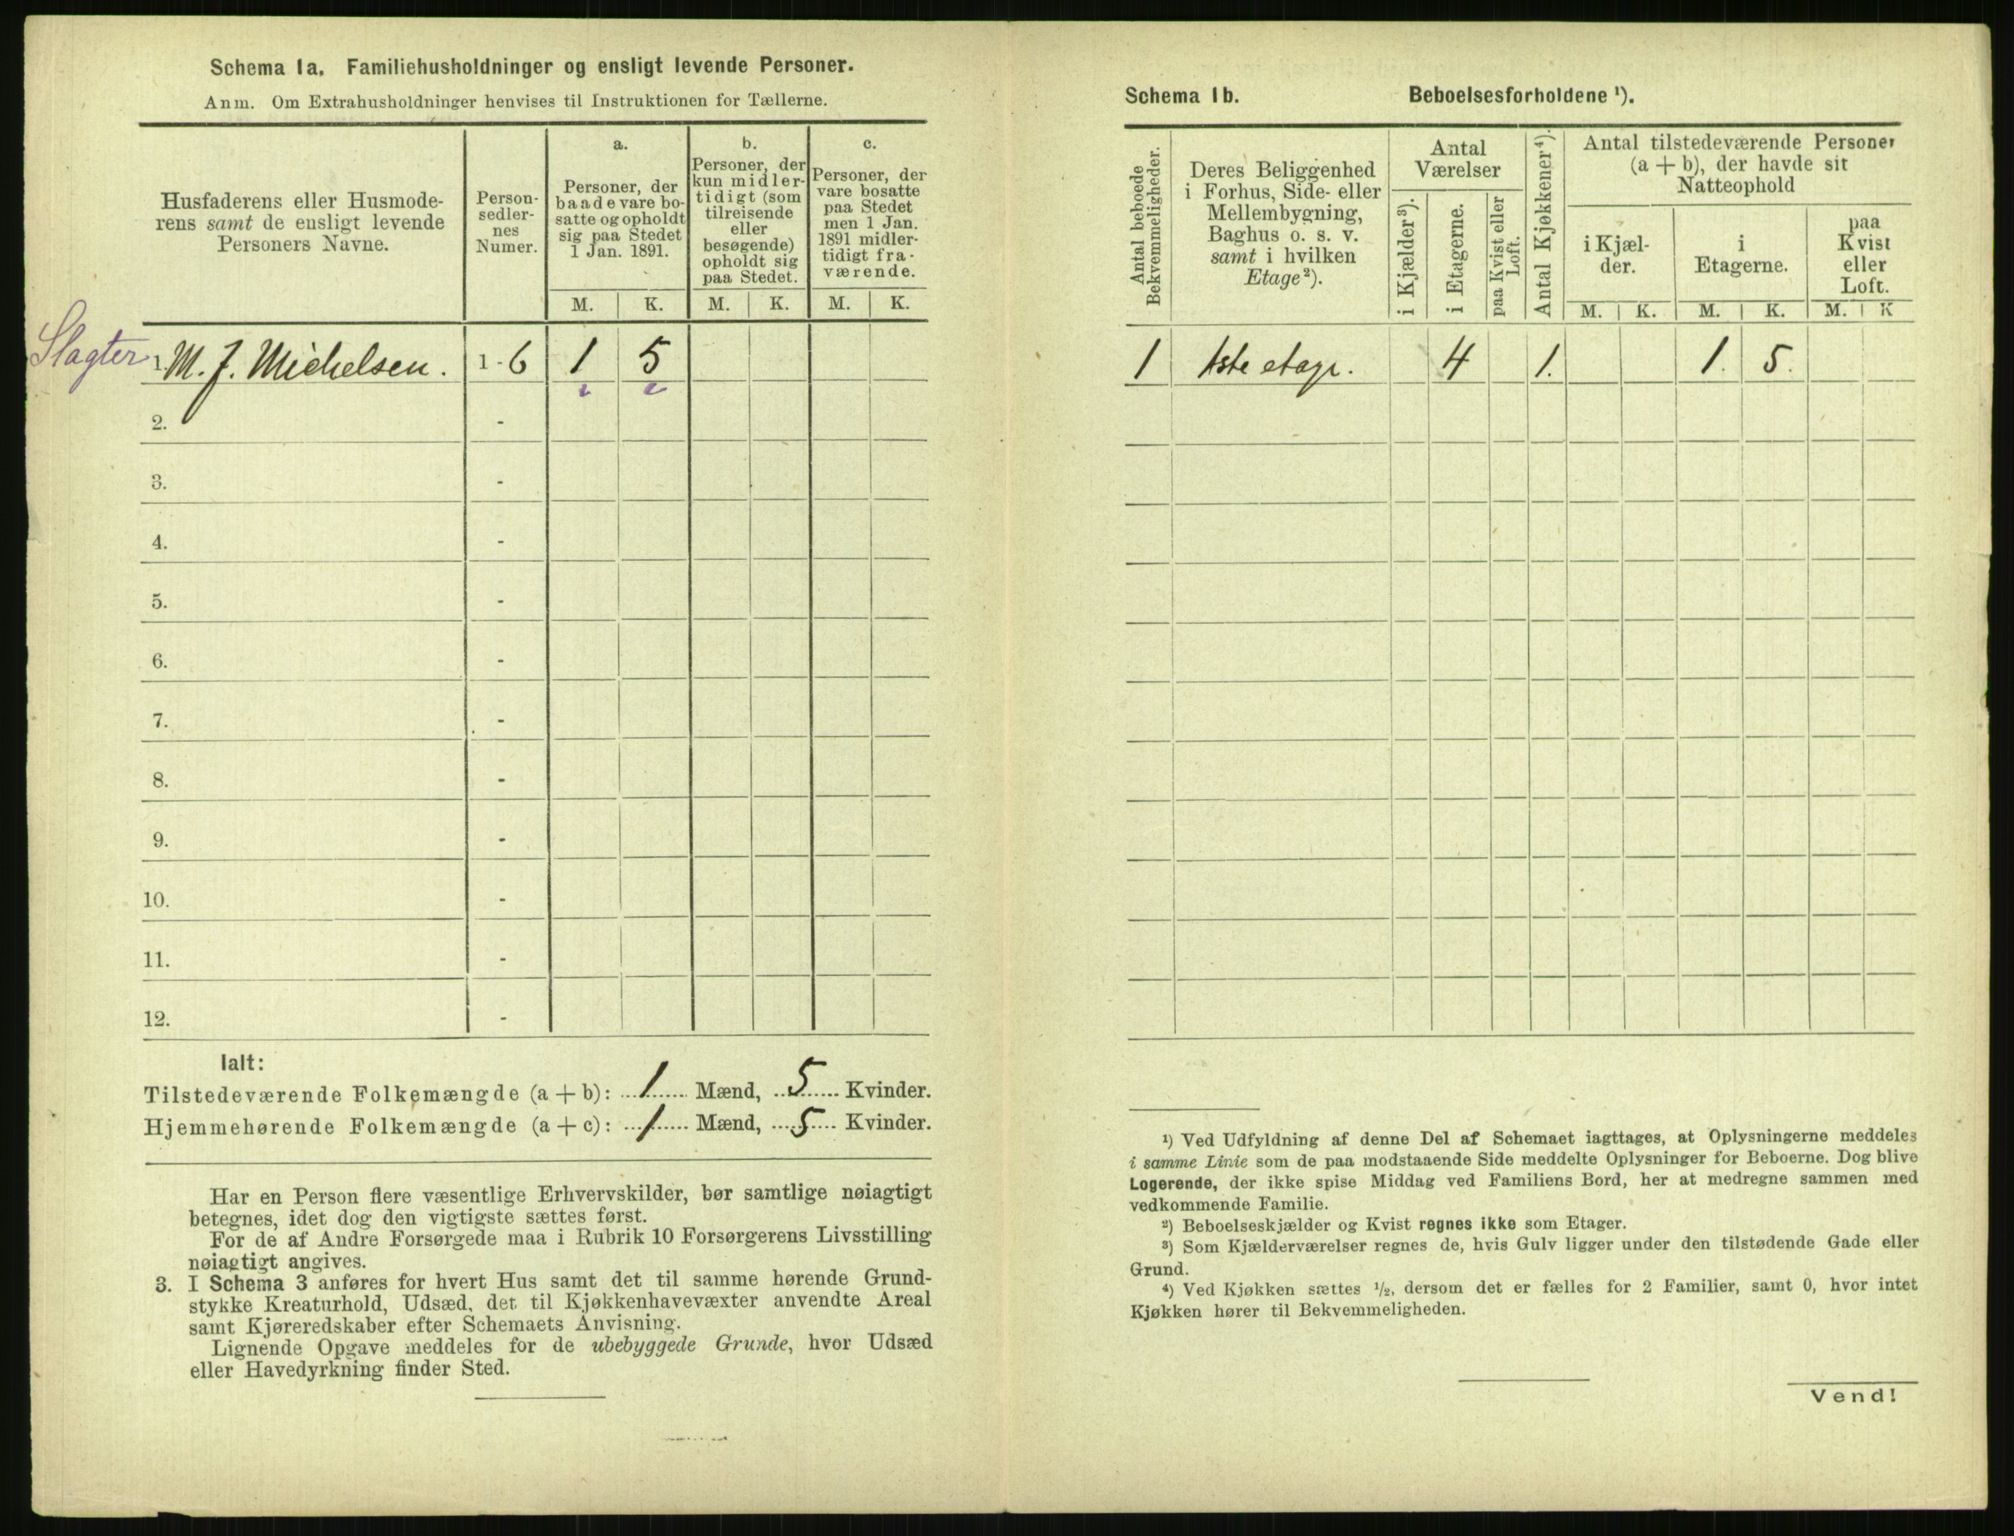 Schema 1a. Familiehusholdninger og ensligt levende Personer.
Anm. Om Extrahusholdninger henvises til Instruktionen for Tællerne.
Husfaderens eller Husmode-
rens samt de ensligt levende
Personers Navne.
Person-
sedler-
nes
Numer.
a.
Personer, der
baade vare bo-
satte og opholdt
sig paa Stedet
1 Jan. 1891.
b.
Personer, der
kun midler-
tidigt (som
tilreisende
eller
besøgende)
opholdt sig
paa Stedet.
c.
Personer, der
vare bosatte
paa Stedet
men 1 Jan.
1891 midler-
tidigt fra-
værende.
M. K. M. K. M. K.
Slagter
1. M. J. Michelsen. 1 - 6 1 5
2. -
3. -
4. -
5. -
6. -
7. -
8. -
9. -
10. -
11. -
12. -
Ialt:
Tilstedeværende Folkemængde (a + b): 1 Mænd, 5 Kvinder.
Hjemmehørende Folkemængde (a + c): 1 Mænd, 5 Kvinder.
Har en Person flere væsentlige Erhvervskilder, bør samtlige nøiagtigt
betegnes, idet dog den vigtigste sættes først.
For de af Andre Forsørgede maa i Rubrik 10 Forsørgerens Livsstilling
nøiagtigt angives.
3. I Schema 3 anføres for hvert Hus samt det til samme hørende Grund-
stykke Kreaturhold, Udsæd, det til Kjøkkenhavevæxter anvendte Areal
samt Kjøreredskaber efter Schemaets Anvisning.
Lignende Opgave meddeles for de ubebyggede Grunde, hvor Udsæd
eller Havedyrkning finder Sted.
Schema 1b. Beboelsesforholdene ¹).
Antal beboede
Bekvemmeligheder.
Deres Beliggenhed
i Forhus, Side- eller
Mellembygning,
Baghus o. s. v.
samt i hvilken
Etage²).
Antal
Værelser
i Kjælder³).
i Etagerne.
paa Kvist eller
Loft.
Antal Kjøkkener⁴).
Antal tilstedeværende Personer
(a + b), der havde sit
Natteophold
i Kjæl-
der.
i
Etagerne.
paa
Kvist
eller
Loft.
M. K. M. K. M. K
1 1ste etage. 4 1. 1. 5.
¹) Ved Udfyldning af denne Del af Schemaet iagttages, at Oplysningerne meddeles
i samme Linie som de paa modstaaende Side meddelte Oplysninger for Beboerne. Dog blive
Logerende, der ikke spise Middag ved Familiens Bord, her at medregne sammen med
vedkommende Familie.
²) Beboelseskjælder og Kvist regnes ikke som Etager.
³) Som Kjælderværelser regnes de, hvis Gulv ligger under den tilstødende Gade eller
Grund.
⁴) Ved Kjøkken sættes ½, dersom det er fælles for 2 Familier, samt 0, hvor intet
Kjøkken hører til Bekvemmeligheden.
Vend!